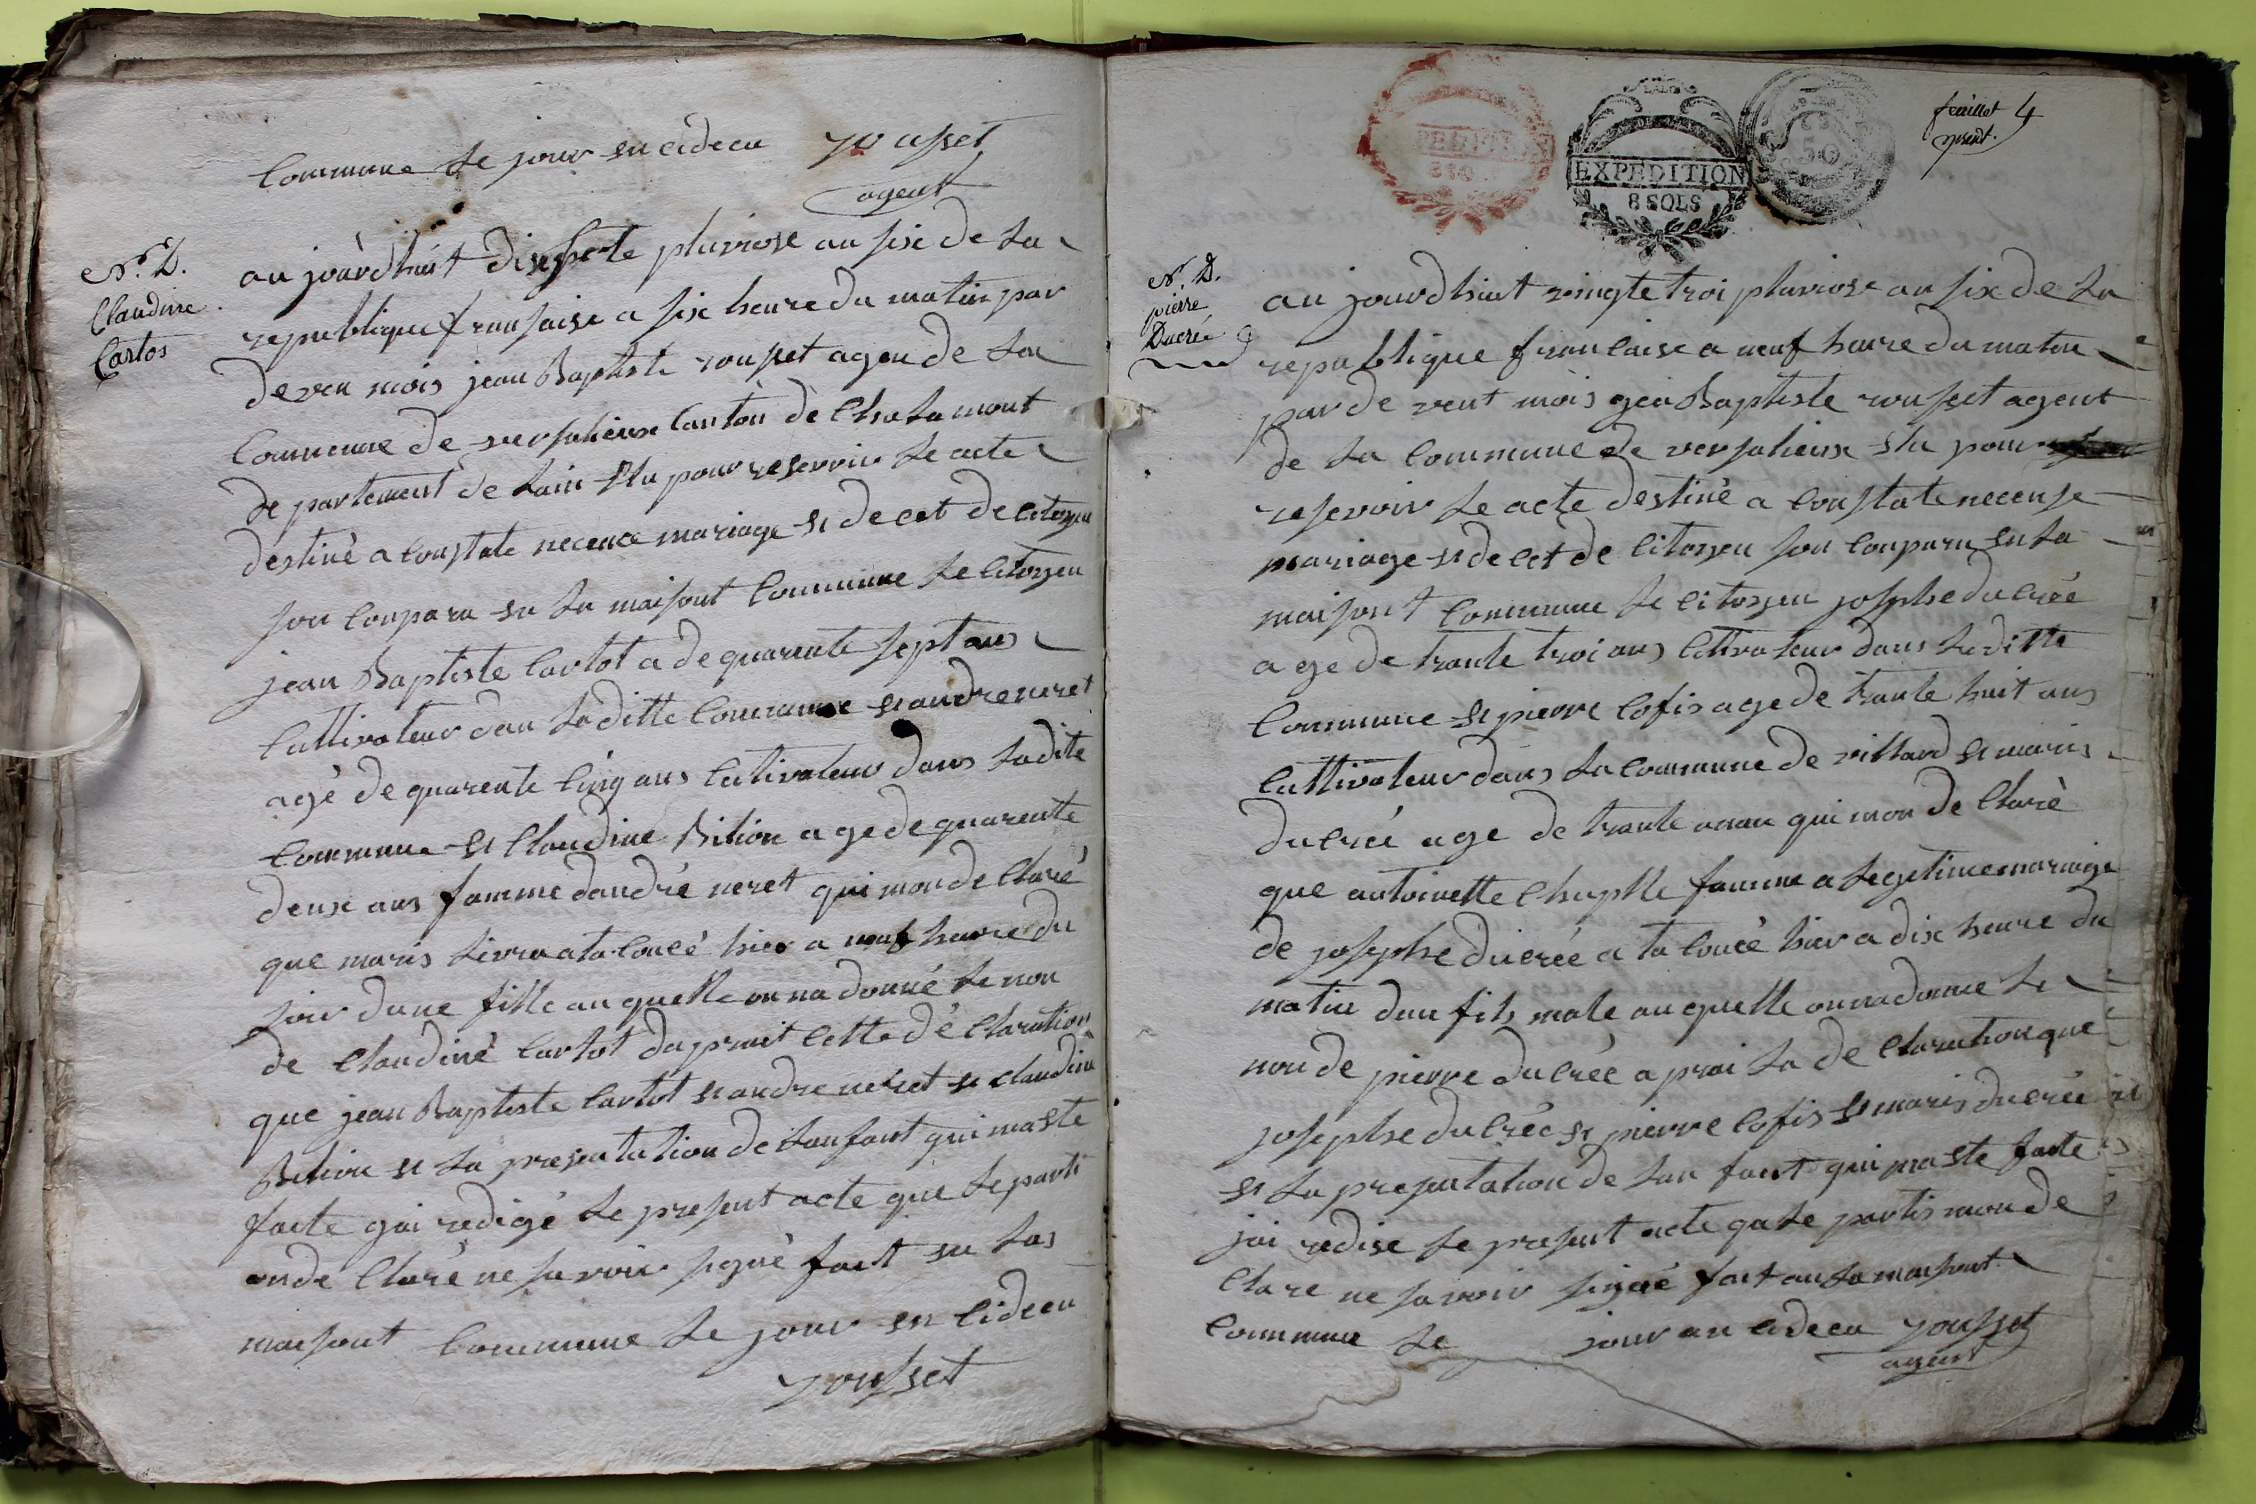 Commune le jour en cideen rousset
agent
N.° D.
Claudine
Cartos
au jourdhuit dixsepte pluviose an six de la
republique fransaise a six heure du matin par
deven mois jean Baptiste rousset agen de la
Commune de versalieux Canton de Chalamont
de partement de lain élu pour reservoir le acte
destiné a Constate necence mariage et decet de citoyen
son Conparu en la maisont Commune le Citoyen
jean Baptiste Cartot a de quarente sept ans
Cultivateur dan la ditte Commune et andre neret
agé de quarente Cinq ans Cultivateur dans ladite
Commune et Claudine Bition age de quarente
deux ans famme dandré neret qui mon de Claré
que maris livra ata Couce hier a neuf heure du
soir dune fille au quelle on na donné le non
de Claudine Cartot daprait Cette dé Claration
que jean Baptiste Cartot et andre neret et Claudine
Bition et la presentation de lanfant qui maste
faite gai redigé le present acte que le parti
on de Claré ne savoir signé fait en las
maisont Commune le jour en Cideen
rousset
EXPEDITION
8 SOLS
feuillet 4
N.° D.
pierre
Ducrée
au jourdhuit vingte troi pluviose an six de la
republique francaise a neuf heure du matin
par de vent mois gen Baptiste rousset agent
de la Commune de versalieux élu pour
reservoir le acte destiné a Constate necense
mariage et decet de Citoyen son Conparu en la
maisont Commune le Citoyen josephe ducrée
age de trante troi ans Cultivateur dans la ditte
Commune et pierre Cofis age de trante huit ans
Cultivateur dans la Commune de villard et maris
ducrée age de trante qui mon de Claré
que antoinette Chaptle famme a legetime mariage
de josephe ducrée a ta Couce hier a dix heure du
matin dun fils male au quelle on na donne le
non de pierre ducrée aprai la de Claration que
josephe ducrée et pierre Cofis et maris ducrée
et la presentation de lan fant qui ma ste faite
jai redise le present acte qua le partis mon de
Clare ne savoir signé fait an la maisont
Commune le jour an cideen rousset
agent